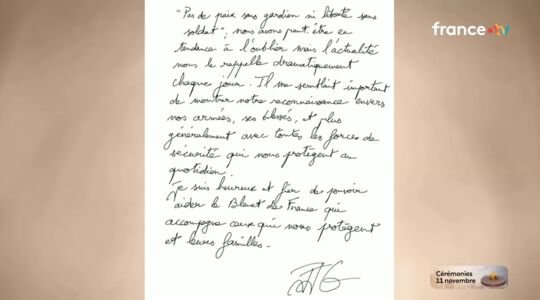 "Pas de paix sans gardien ni liberté sans
soldat", nous avons peut-être eu
tendance à l'oublier mais l'actualité
nous le rappelle dramatiquement
chaque jour. Il me semblait important
de montrer notre reconnaissance envers
nos armées, ses blessés, et plus
généralement avec toutes les forces de
sécurité qui nous protègent au
quotidien.
Je suis heureux et fier de pouvoir
aider le Bleuet de France qui
accompagne ceux qui nous protègent
et leurs familles.
france.tv
Cérémonies
11 novembre